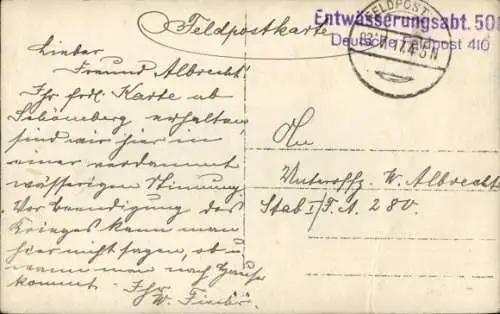 Feldpostkarte
Entwässerungsabt. 501
Deutsche Feldpost 410
FELDPOST
Lieber
Freund Albrecht!
Ihr frdl. Karte ab
Schöneberg erhalten,
sind wir hier in
einer verdammt
wässerigen Stimmung.
Vor Beendigung des
Krieges kann man
hier nicht sagen, ob u.
wann man nach Hause
kommt. Ihr
W.
An
Unteroffz. W. Albrecht
Stab I/F. A. 280.